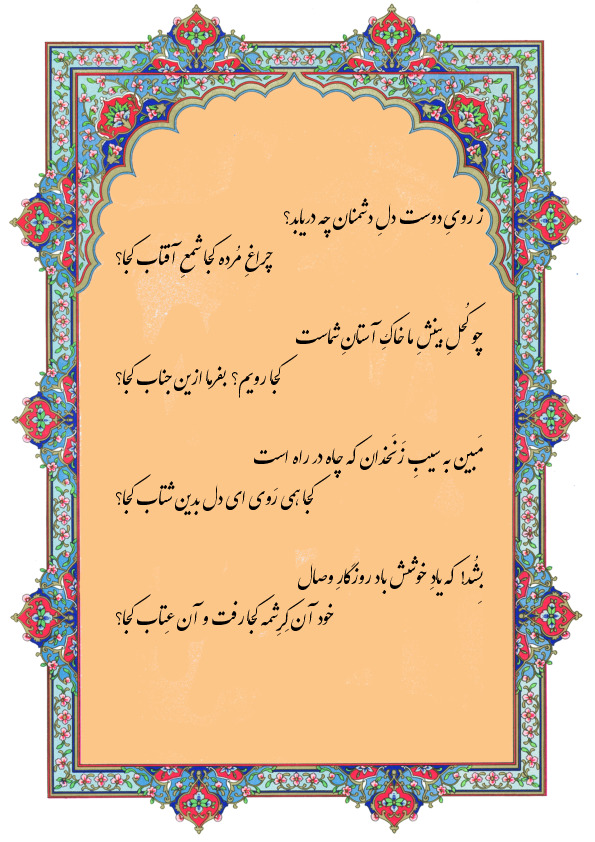 ز رویِ دوست دلِ دشمنان چه دریابد؟
چراغِ مُرده کجا شمعِ آفتاب کجا؟
چو کُحلِ بینشِ ما خاکِ آستانِ شماست
کجا رویم؟ بفرما ازین جناب کجا؟
مَبین به سیبِ زَنَخدان که چاه در راه است
کجا همی رَوی ای دل بدین شتاب کجا؟
بِشُد! که یادِ خوشش باد روزگارِ وصال
خود آن کِرِشمه کجا رفت و آن عِتاب کجا؟